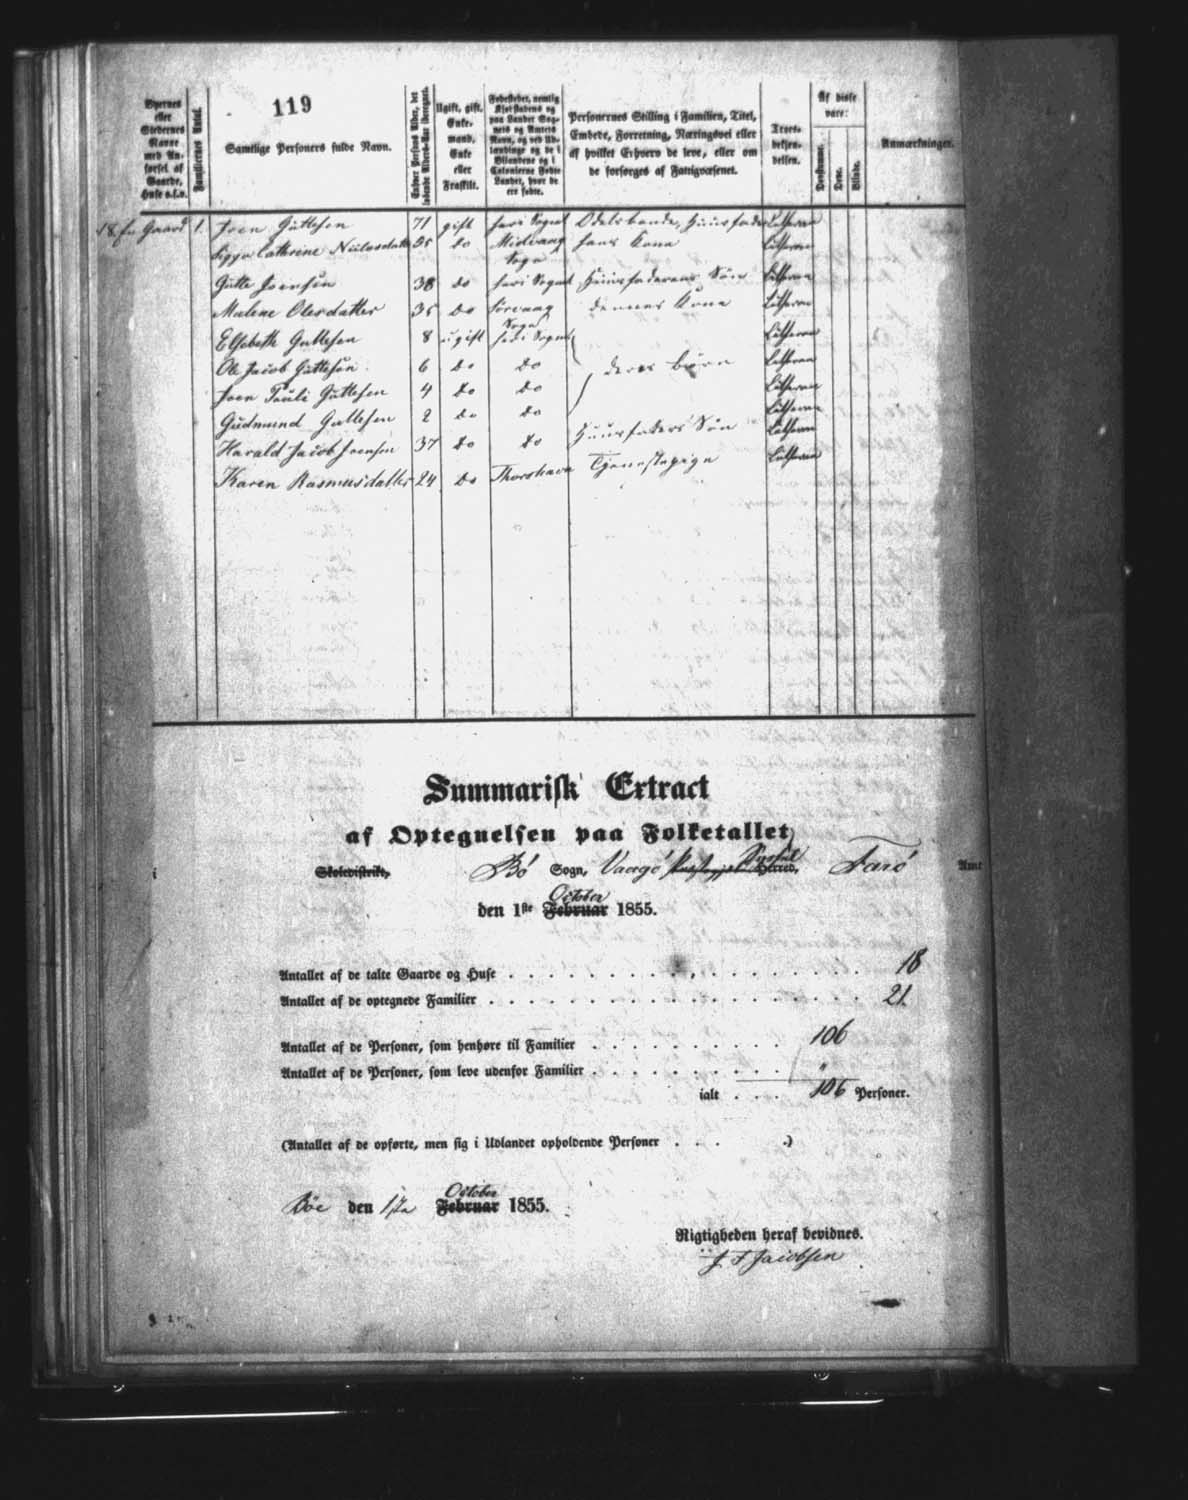 119
Byernes eller Stedernes Navne med Anførsel af Gaarde, Huse o.s.v.
Familiernes Antal.
Samtlige Personers fulde Navn.
Enhver Persons Alder, det løbende Alders-Aar iberegnet.
Ugift, gift, Enkemand, Enke eller Fraskilt.
Fødestedet, nemlig Kjøbstadens og paa Landet Sognets og Amtets Navn, og ved Udlændinge og de i Bilandene og i Colonierne Fødte Landet, hvor de ere fødte.
Personernes Stilling i Familien, Titel, Embede, Forretning, Næringsvei eller af hvilket Erhverv de leve, eller om de forsørges af Fattigvæsenet.
Troesbekjendelsen.
Af disse vare:
Døvstumme.
Døve.
Blinde.
Anmærkninger.
18. En Gaard 1. Joen Guttesen 71 gift her i Sognet Odelsbonde, Huusfader Lutheran
Cathrine Nielsdatter do Midvaag Sogn hans Kone Lutheran
Gutte Joensen 38 do her i Sognet Huusfaderens Søn Lutheran
Malene Olesdatter 35 do Sørvaag Sogn dennes Kone Lutheran
Elsebeth Guttesen 8 ugift her i Sognet Lutheran
Ole Jacob Guttesen 6 do do deres Børn Lutheran
Joen Pauli Guttesen 4 do do Lutheran
Gudmund Guttesen 2 do do Lutheran
Harald Jacob Joensen 37 do do Huusfaders Søn Lutheran
Karen Rasmusdatter 24 do Thorshavn Tjenestepige Lutheran
Summarisk Extract
af Optegnelsen paa Folketallet
i Skoledistrikt, Bø Sogn, Vaagø Syssel Herred, Færø Amt
den 1ste October Februar 1855.
Antallet af de talte Gaarde og Huse . . . 18
Antallet af de optegnede Familier . . . 21.
Antallet af de Personer, som henhøre til Familier . . . 106
Antallet af de Personer, som leve udenfor Familier . . . "
ialt . . . 106 Personer.
(Antallet af de opførte, men sig i Udlandet opholdende Personer . . . .)
Bøe den 1ste October Februar 1855.
Rigtigheden heraf bevidnes.
J F Jacobsen